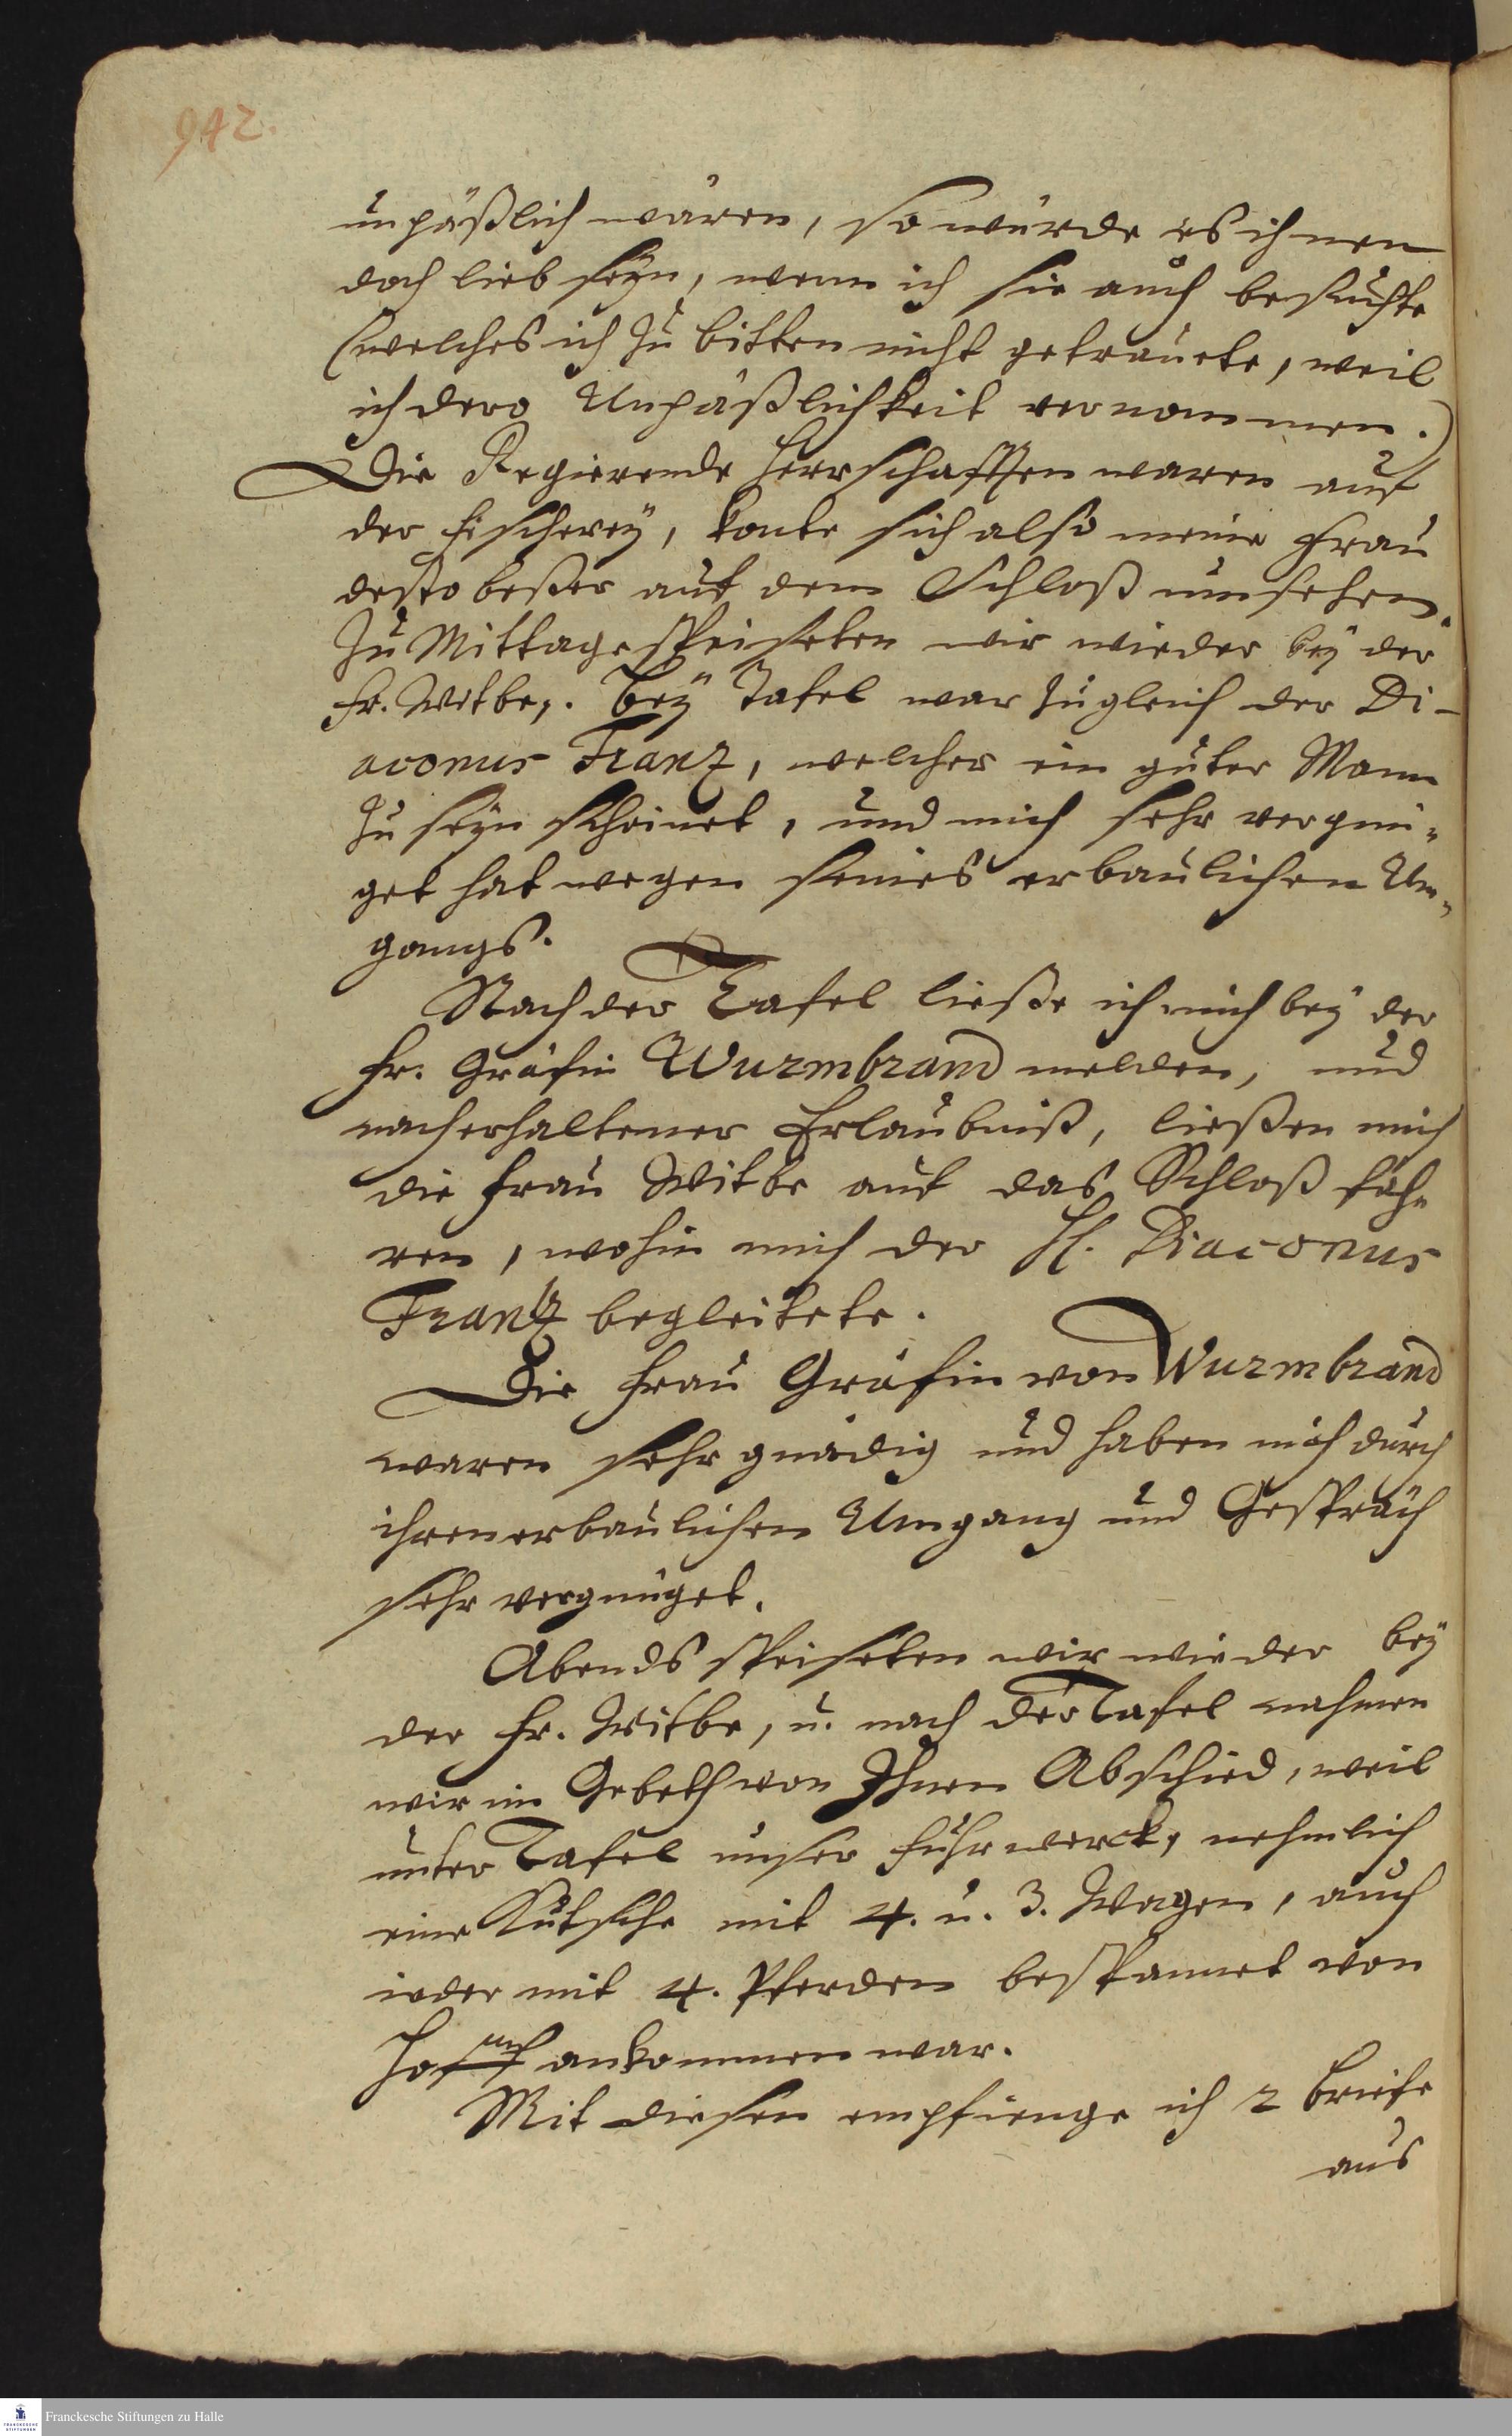 942.
unpäßlich wären, so würde es ihnen
doch lieb seyn, wenn ich sie auch besuchte
(welches ich zu bitten nicht getrauete, weil
ich dero Unpäßlichkeit vernommen.)
Die Regierende Herrschafften waren auf
der Fischerey, konte sich also meine Frau
desto beßer auf dem Schloß umsehen.
Zu Mittage speiseten wir wieder bey der
Fr. Witbe,. Bey Tafel war zugleich der Di-
aconus Franz, welcher ein guter Mann
zu seyn scheinet, und mich sehr vergnü-
get hat wegen seines erbaulichen Um-
gangs.
Nach der Tafel ließe ich mich bey der
Fr. Gräfin Wurmbrand melden, und
nach erhaltener Erlaubniß, ließen mich
die Frau Witbe auf das Schloß fäh-
ren, wohin mich der H. Diaconus
Frantz begleitete.
Die Frau Gräfin von Wurmbrand
waren sehr gnädig und haben mich durch
ihren erbaulichen Umgang und Gespräch
sehr vergnüget.
Abends speiseten wir wieder bey
der Fr. Witbe, u. nach der Tafel nahmen
wir im Gebeth von Ihnen Abschied, weil
unter Tafel unser Fuhrwerck, nehmlich
eine Kutsche mit 4. u. 3. Wagen, auch
ieder mit 4. Pferden bespannet von
Hoff ankommen war.
Mit diesen empfienge ich 2 Briefe
aus
Franckesche Stiftungen zu Halle
FRANCKESCHE
STIFTUNGEN